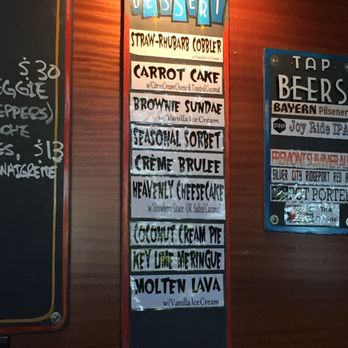 $30
EGGIE
EPPERS)
$13
NAIGRETTE
DESSERT
STRAW-RHUBARB COBBLER
CARROT CAKE
w/Citrus Cream Cheese & Toasted Coconut
BROWNIE SUNDAE
w/Vanilla Ice Cream
SEASONAL SORBET
CREME BRULEE
HEAVENLY CHEESECAKE
w/Strawberry Sauce OR Salted Caramel
COCONUT CREAM PIE
KEY LIME MERINGUE
MOLTEN LAVA
w/Vanilla Ice Cream
TAP
BEERS
BAYERN Pilsener
Joy Ride IPA
FREMONT SUMMER AL
SILVER CITY RIDGEPORT RED
PORTER